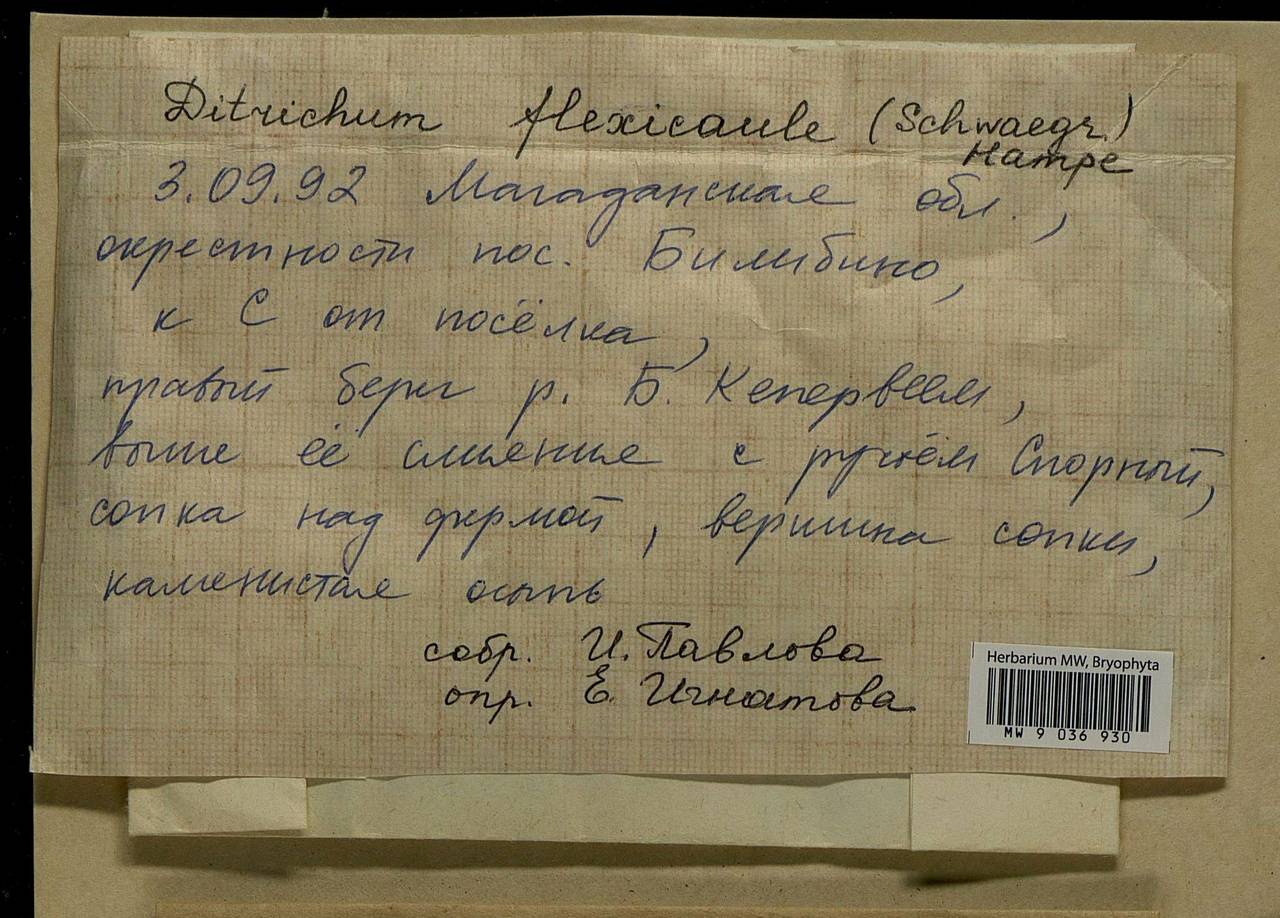 Ditrichum flexicaule (Schwaegr.)
Hampe
3.09.92 Магаданская обл.,
окрестности пос. Билибино,
к С от посёлка,
правый берег р. Б. Кепервеем,
выше её слияния с ручьём Спорный,
сопка над фермой, вершина сопки,
каменистая осыпь
собр. И. Павлова
опр. Е. Игнатова
Herbarium MW, Bryophyta
MW 9 036 930